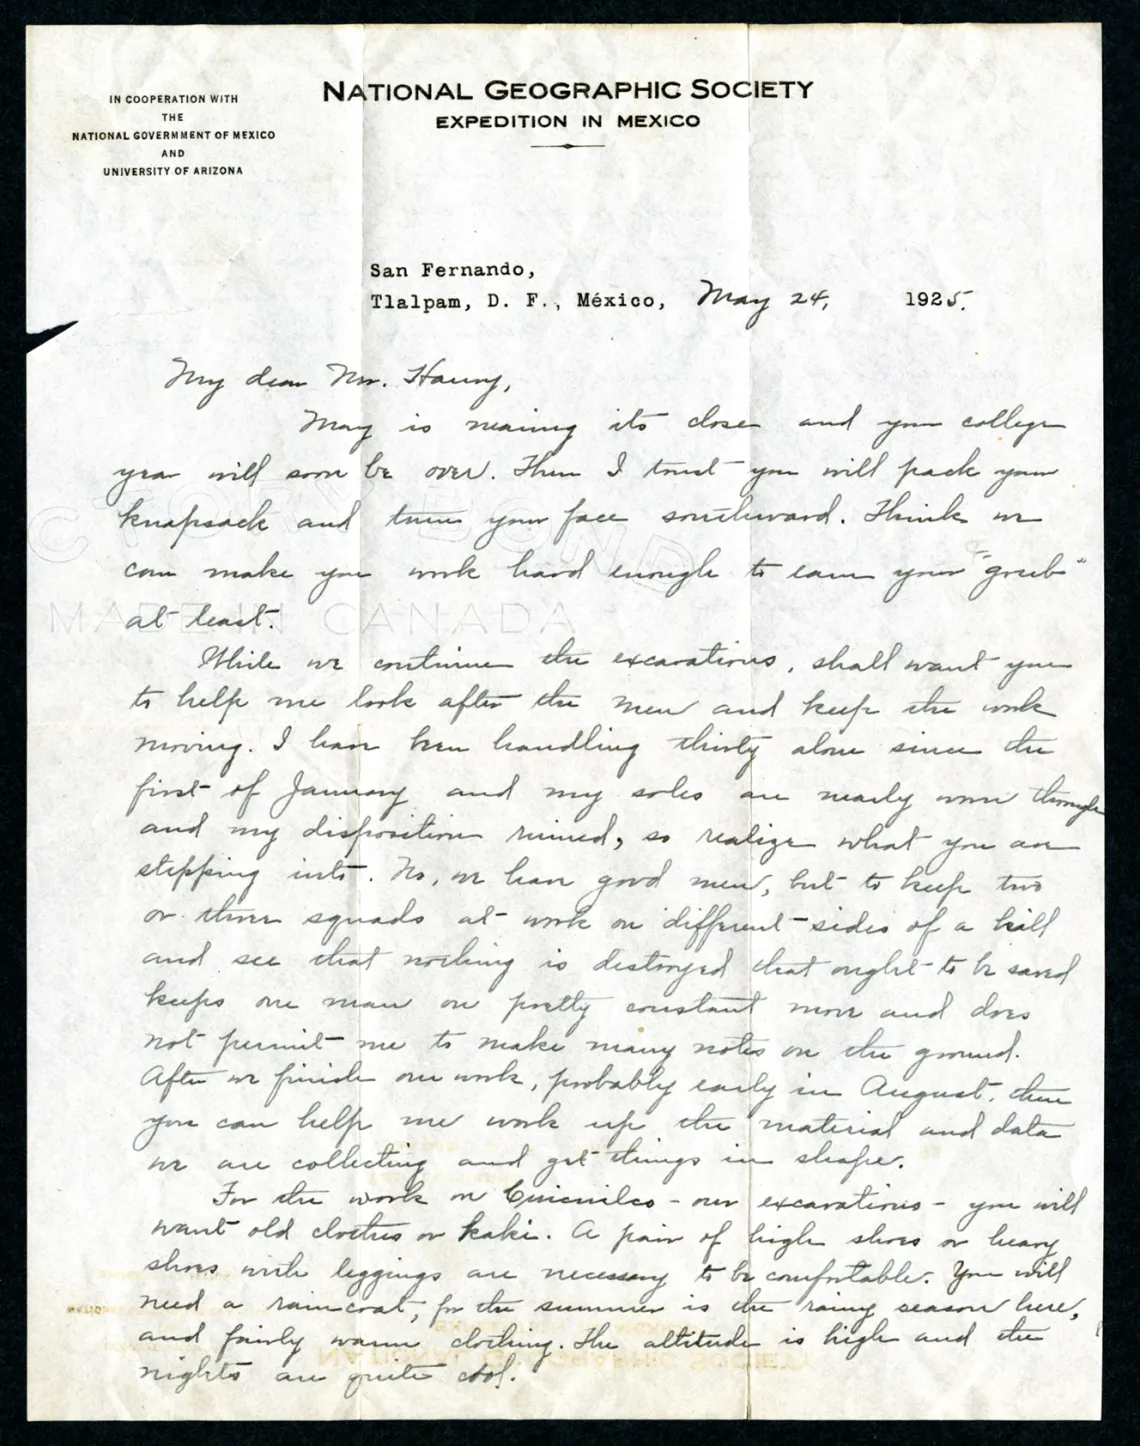 IN COOPERATION WITH
THE
NATIONAL GOVERNMENT OF MEXICO
AND
UNIVERSITY OF ARIZONA
NATIONAL GEOGRAPHIC SOCIETY
EXPEDITION IN MEXICO
San Fernando,
Tlalpam, D. F., México, May 24, 1925.
My dear Mr. Haury,
May is nearing its close and your college
year will soon be over. Then I trust you will pack your
knapsack and turn your face southward. Think we
can make you work hard enough to earn your "grub"
at least.
While we continue the excavations, shall want you
to help me look after the men and keep the work
moving. I have been handling thirty alone since the
first of January and my soles are nearly worn through
and my disposition ruined, so realize what you are
stepping into. No, we have good men, but to keep two
or three squads at work on different sides of a hill
and see that nothing is destroyed that ought to be saved
keeps one man on pretty constant move and does
not permit me to make many notes on the ground.
After we finish our work, probably early in August, then
you can help me work up the material and data
we are collecting and get things in shape.
For the work on Cuicuilco - our excavations - you will
want old clothes or kaki. A pair of high shoes or heavy
shoes with leggings are necessary to be comfortable. You will
need a raincoat, for the summer is the rainy season here,
and fairly warm clothing. The altitude is high and the
nights are quite cool.
MADE IN CANADA